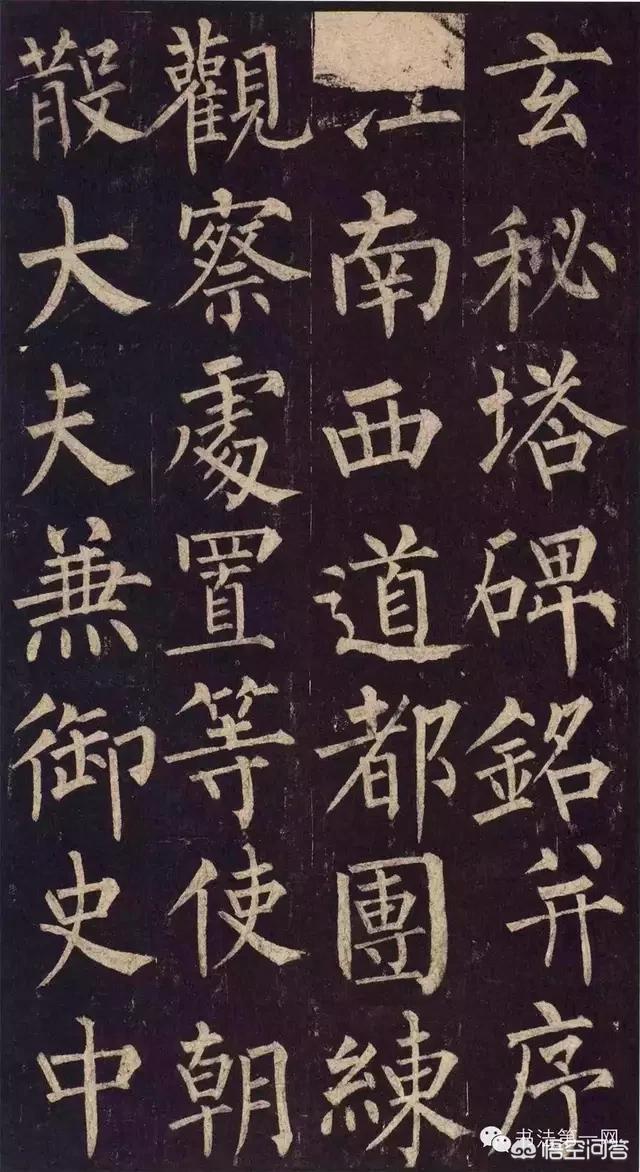 玄秘塔碑銘并序
江南西道都團練
觀察處置等使朝
散大夫兼御史中
书法第一网
悟空问答